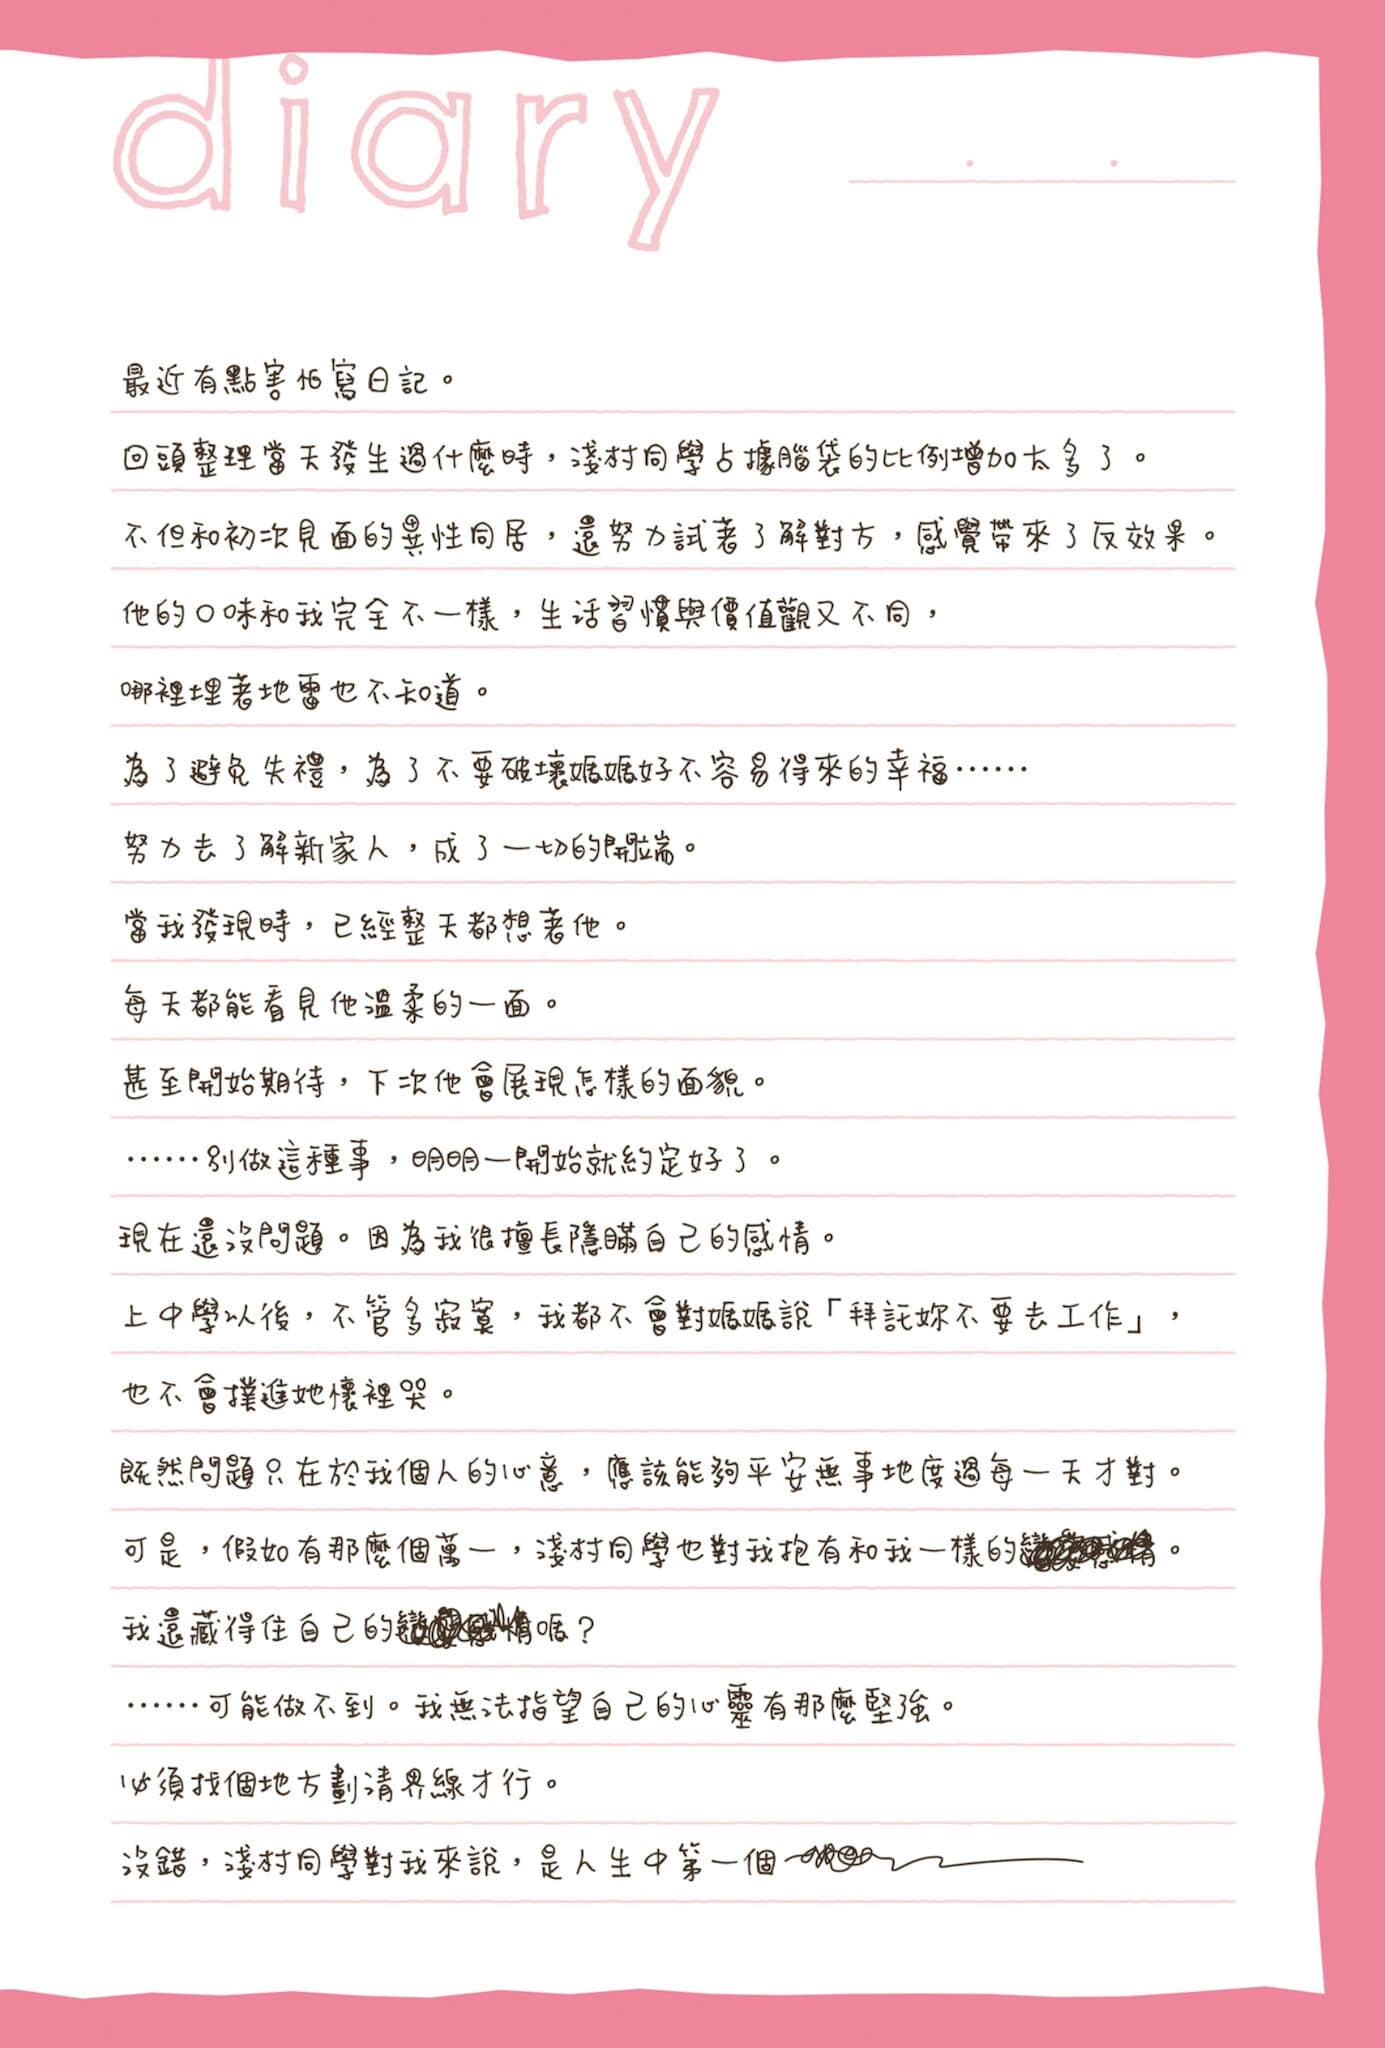 diary
最近有點害怕寫日記。
回頭整理當天發生過什麼時，淺村同學占據腦袋的比例增加太多了。
不但和初次見面的異性同居，還努力試著了解對方，感覺帶來了反效果。
他的口味和我完全不一樣，生活習慣與價值觀又不同，
哪裡埋著地雷也不知道。
為了避免失禮，為了不要破壞媽媽好不容易得來的幸福……
努力去了解新家人，成了一切的開端。
當我發現時，已經整天都想著他。
每天都能看見他溫柔的一面。
甚至開始期待，下次他會展現怎樣的面貌。
……別做這種事，明明一開始就約定好了。
現在還沒問題。因為我很擅長隱瞞自己的感情。
上中學以後，不管多寂寞，我都不會對媽媽說「拜託妳不要去工作」，
也不會撲進她懷裡哭。
既然問題只在於我個人的心意，應該能夠平安無事地度過每一天才對。
可是，假如有那麼個萬一，淺村同學也對我抱有和我一樣的。
我還藏得住自己的嗎？
……可能做不到。我無法指望自己的心靈有那麼堅強。
必須找個地方劃清界線才行。
沒錯，淺村同學對我來說，是人生中第一個